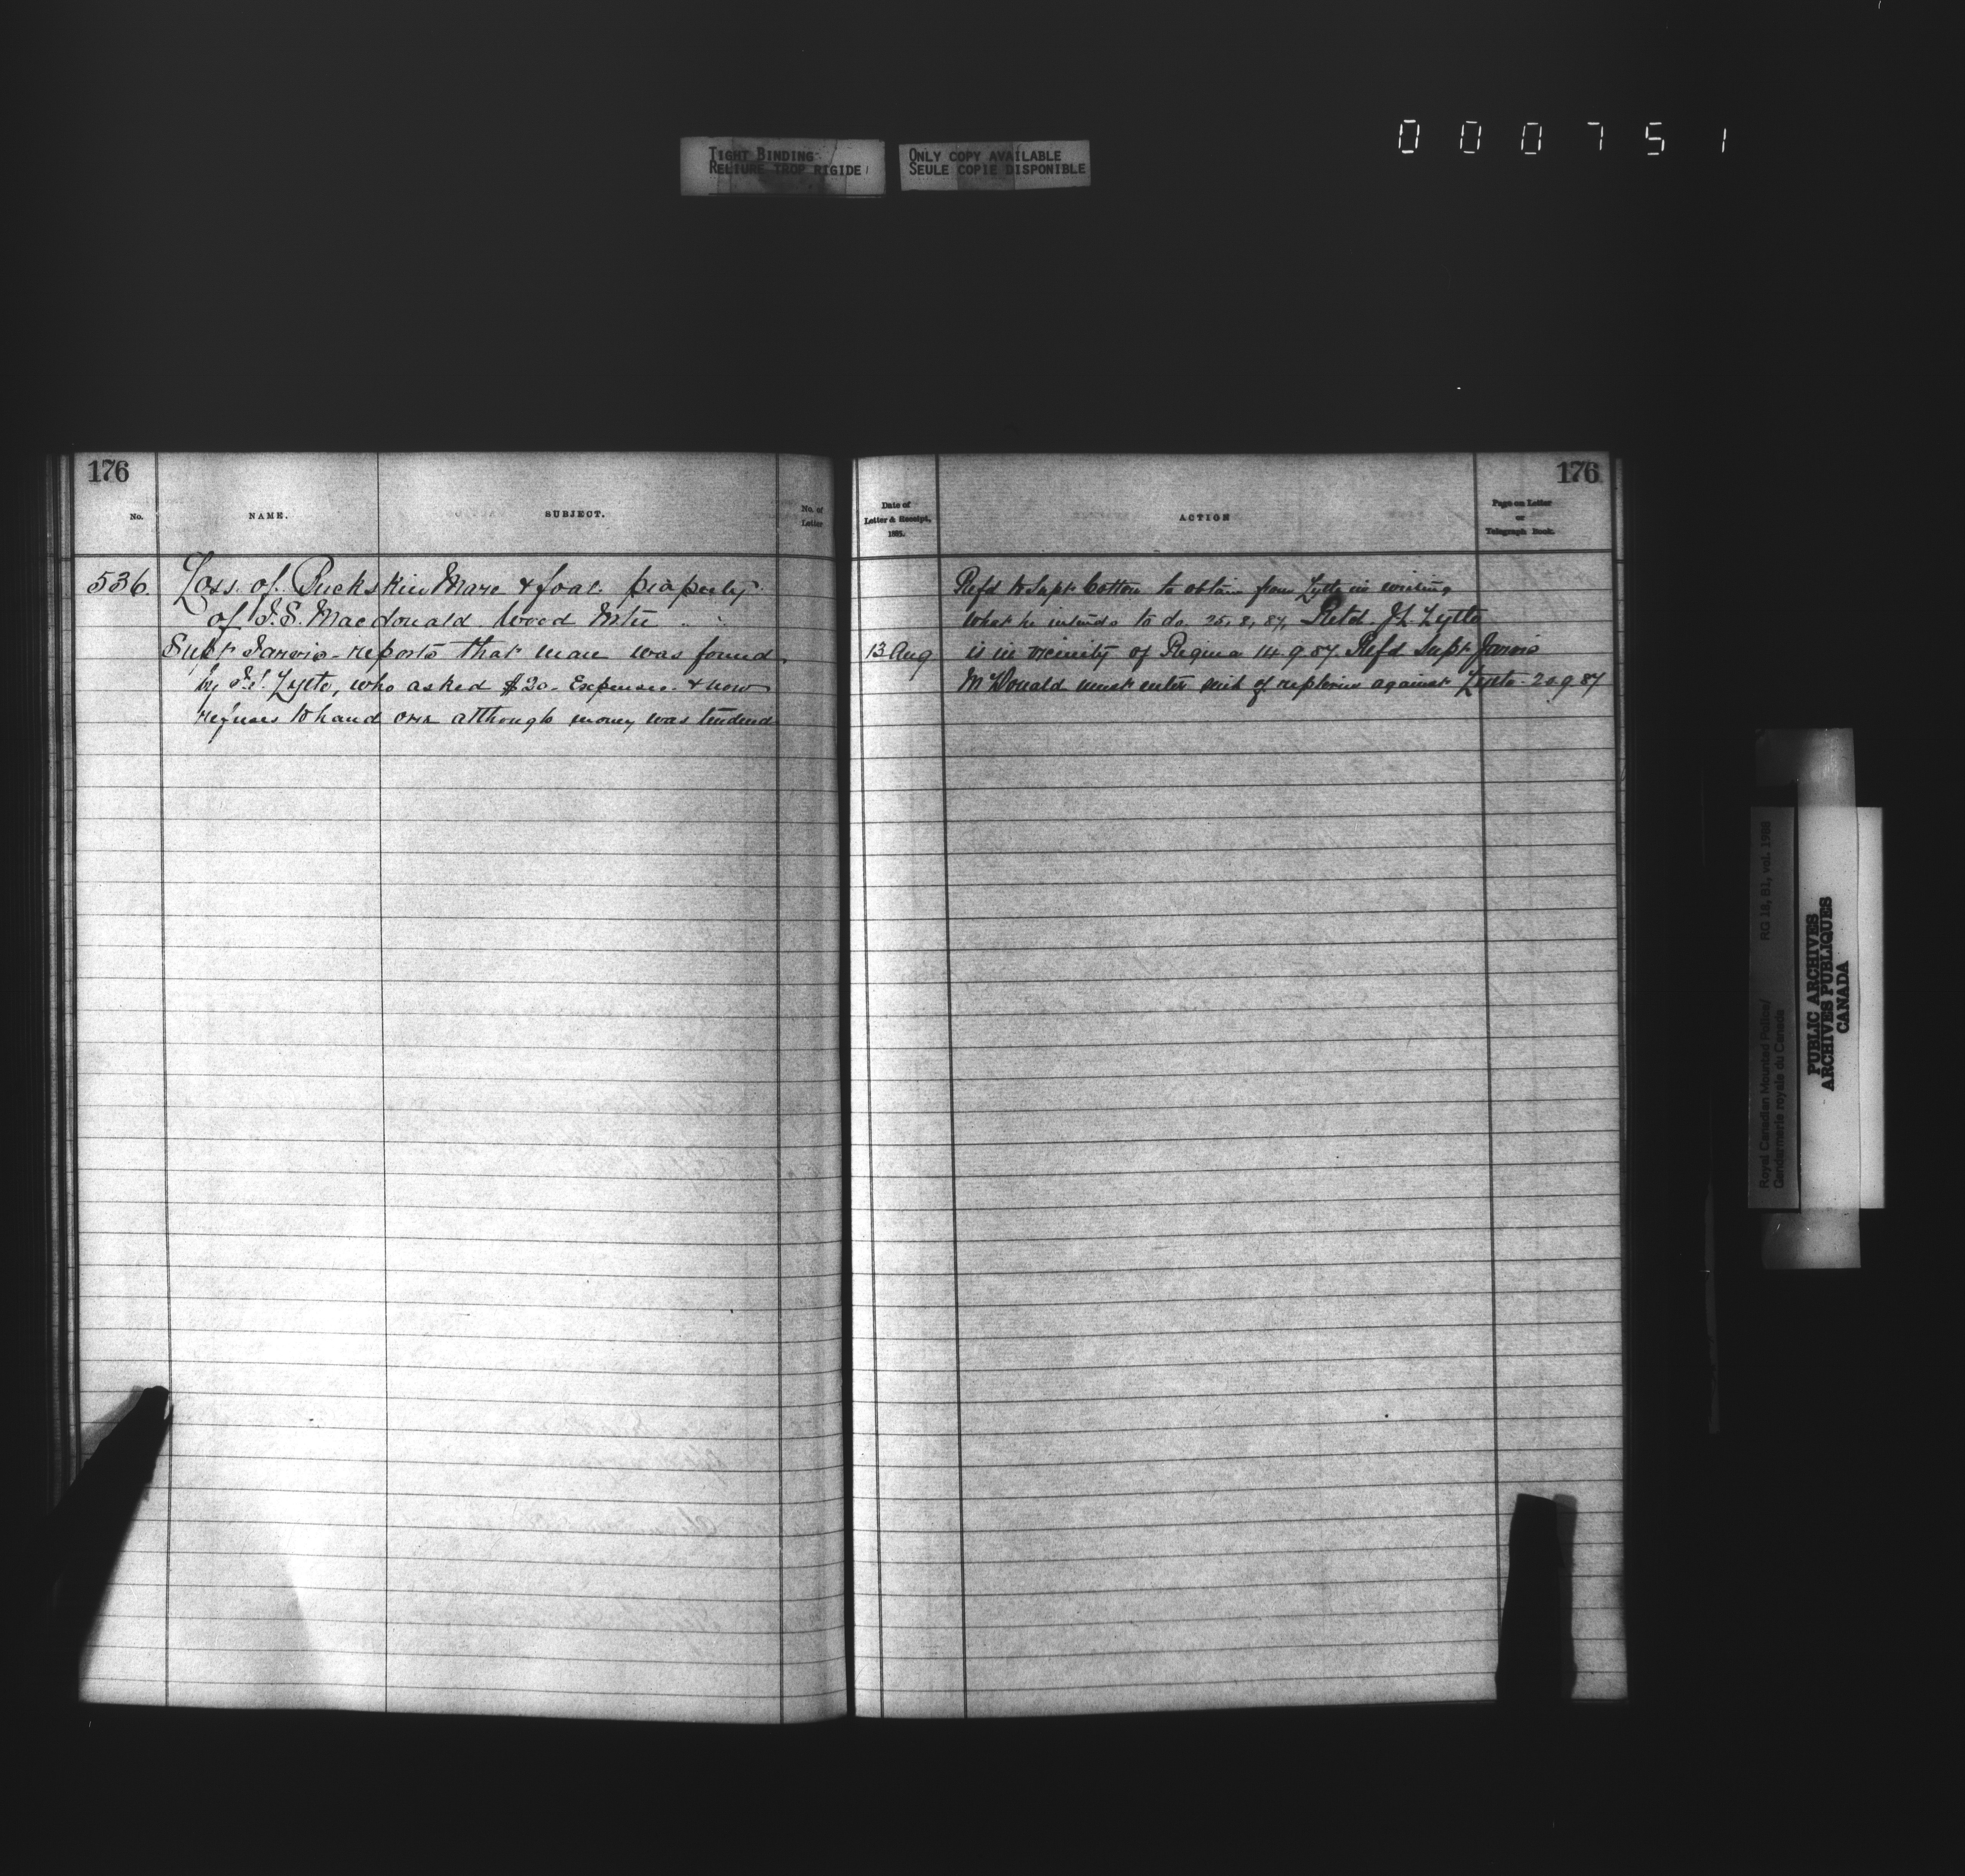 000751
TIGHT BINDING
RELIURE TROP RIGIDE
ONLY COPY AVAILABLE
SEULE COPIE DISPONIBLE
176
No.
NAME.
SUBJECT.
No. of
Letter
536 Loss of Buckskin Mare & foal property
of J.S. Macdonald Wood Mtn
Supt Jarvis reports that mare was found
by J.L. Lytle, who asked $20 - Expenses & now
refuses to hand over although money was tendered
176
Date of
Letter & Receipt,
1885.
ACTION
Page on Letter
or
Telegraph Book.
Refd to Supt Cotton to obtain from Lytle in writing
what he intends to do 25,8,87, Retd. JL Lytle
13 Aug is in vicinity of Regina 14 9 87. Refd Supt Jarvis
McDonald must enter suit of replevin against Lytle 20 9 87
Royal Canadian Mounted Police/
Gendarmerie royale du Canada
RG 18, B1, vol. 1988
PUBLIC ARCHIVES
ARCHIVES PUBLIQUES
CANADA